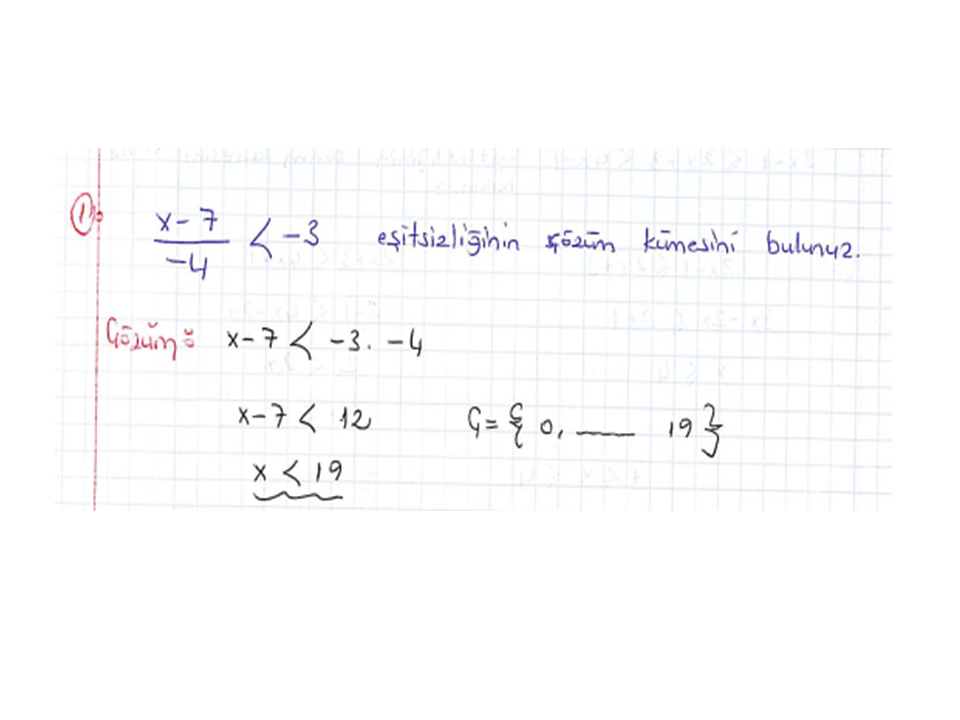 1) x-7/-4 < -3 eşitsizliğinin çözüm kümesini bulunuz.
Çözüm: x-7 < -3. -4
x-7 < 12 Ç={ 0, — 19}
x < 19